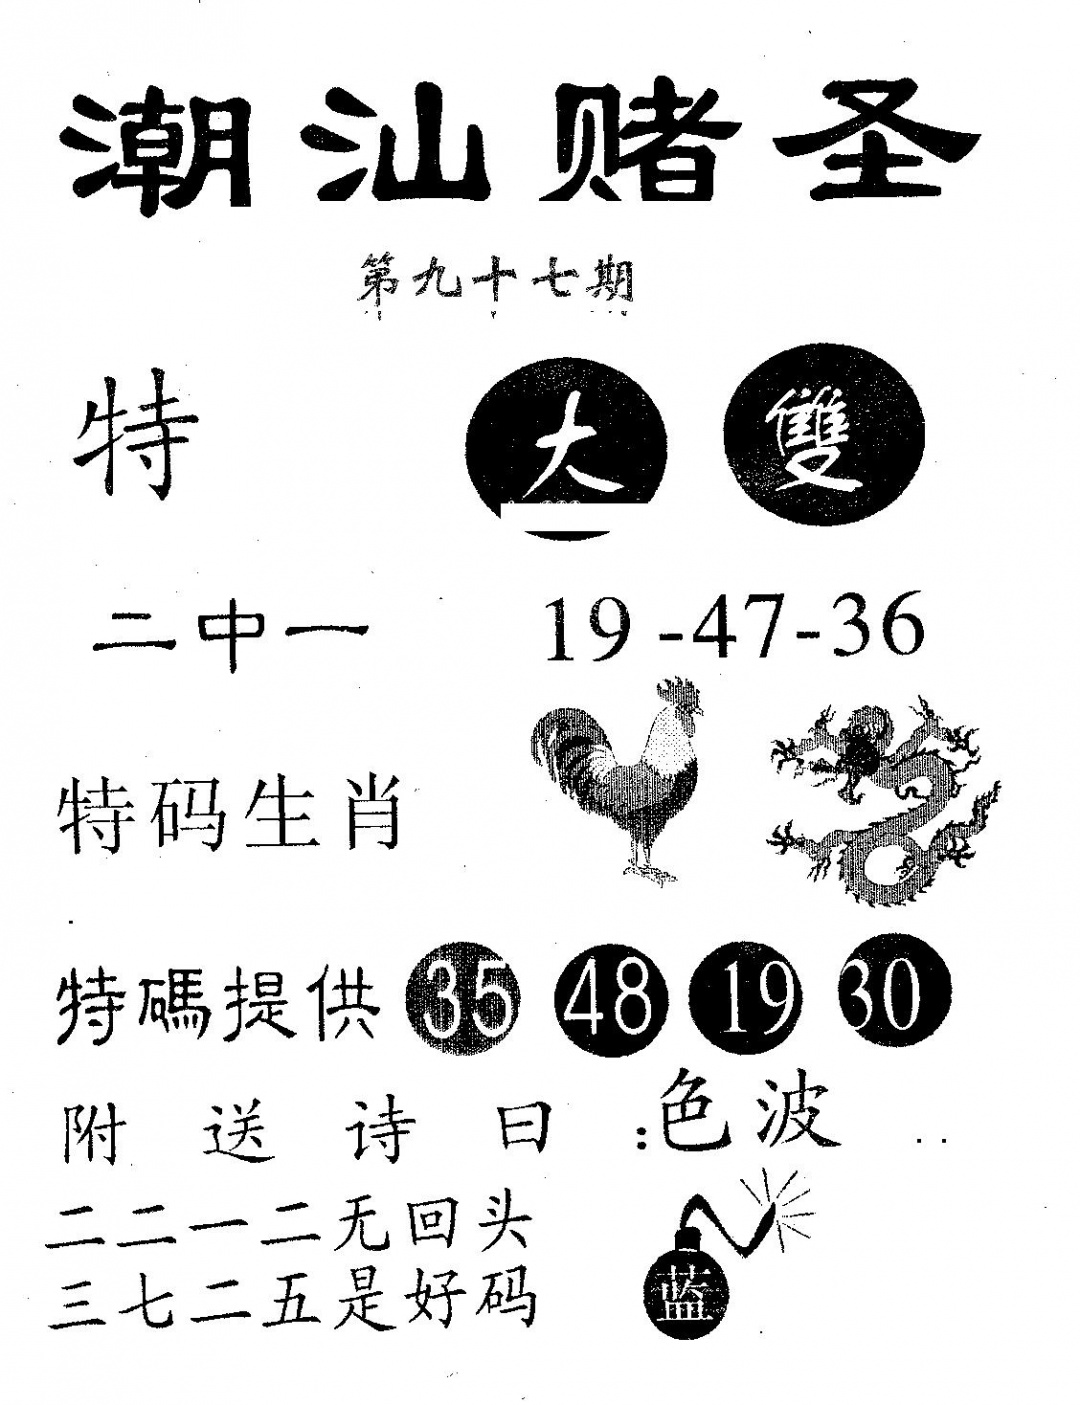 潮汕赌圣
第九十七期
特 大 雙
二中一 19-47-36
特码生肖
特碼提供 35 48 19 30
附送诗曰:色波
二二一二无回头
三七二五是好码
蓝